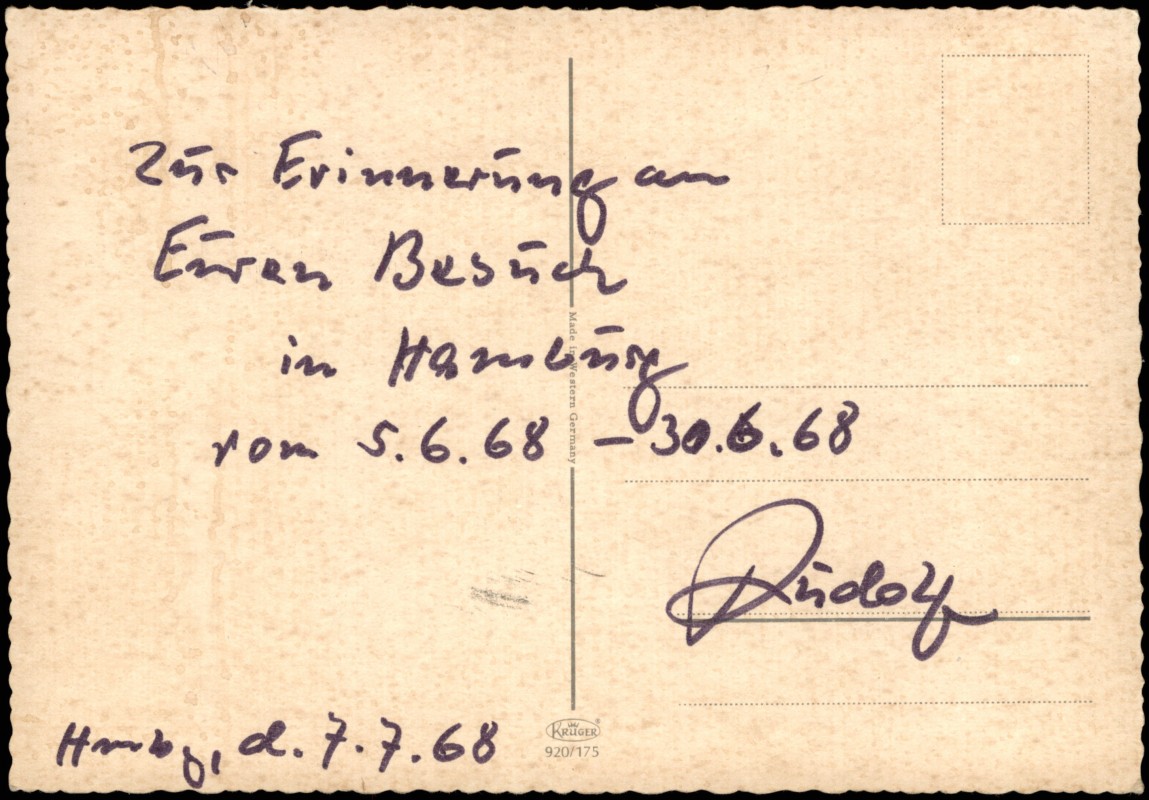 Zur Erinnerung an
Euren Besuch
in Hamburg
vom 5.6.68 – 30.6.68
Rudolf
Hmbg, d. 7.7.68
Made in Western Germany
KRÜGER
920/175